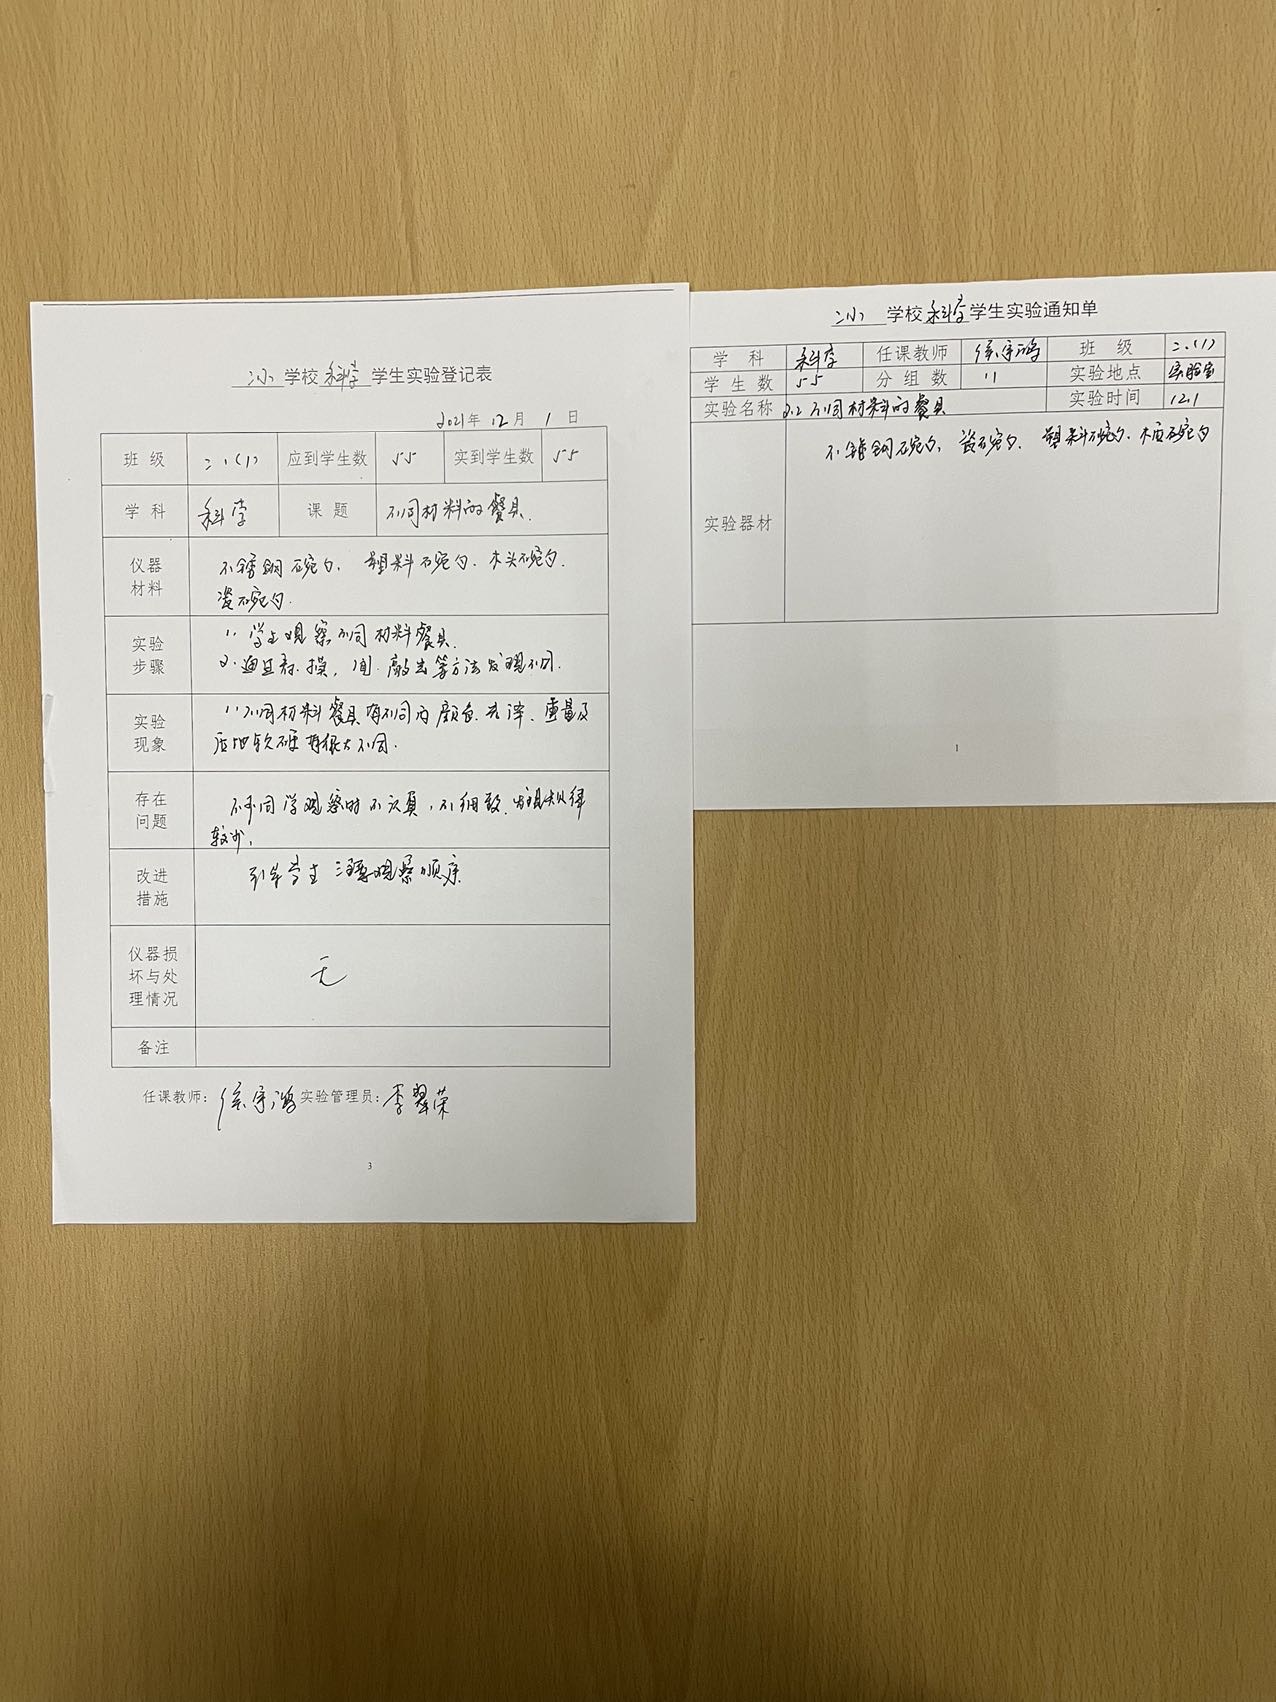 二小 学校 科学 学生实验登记表
2021年 12月 1日
班 级 二.(1) 应到学生数 55 实到学生数 55
学 科 科学 课 题 不同材料的餐具.
仪器材料 不锈钢碗勺. 塑料碗勺. 木头碗勺.
瓷碗勺.
实验步骤 1. 学生观察不同材料餐具.
2. 通过看. 摸, 闻. 敲击等方法发现不同.
实验现象 1. 不同材料餐具有不同的颜色. 光泽. 重量及
质地软硬有很大不同.
存在问题 不少同学观察时不认真, 不细致. 发现规律
较少.
改进措施 引导学生 观察顺序
仪器损坏与处理情况 无
备注
任课教师: 徐宇鸿 实验管理员: 李翠荣
3
二小 学校 科学 学生实验通知单
学 科 科学 任课教师 徐宇鸿 班 级 二.(1)
学 生 数 55 分 组 数 11 实验地点 实验室
实验名称 2.2 不同材料的餐具 实验时间 12.1
实验器材 不锈钢碗勺, 瓷碗勺. 塑料碗勺. 木质碗勺
1